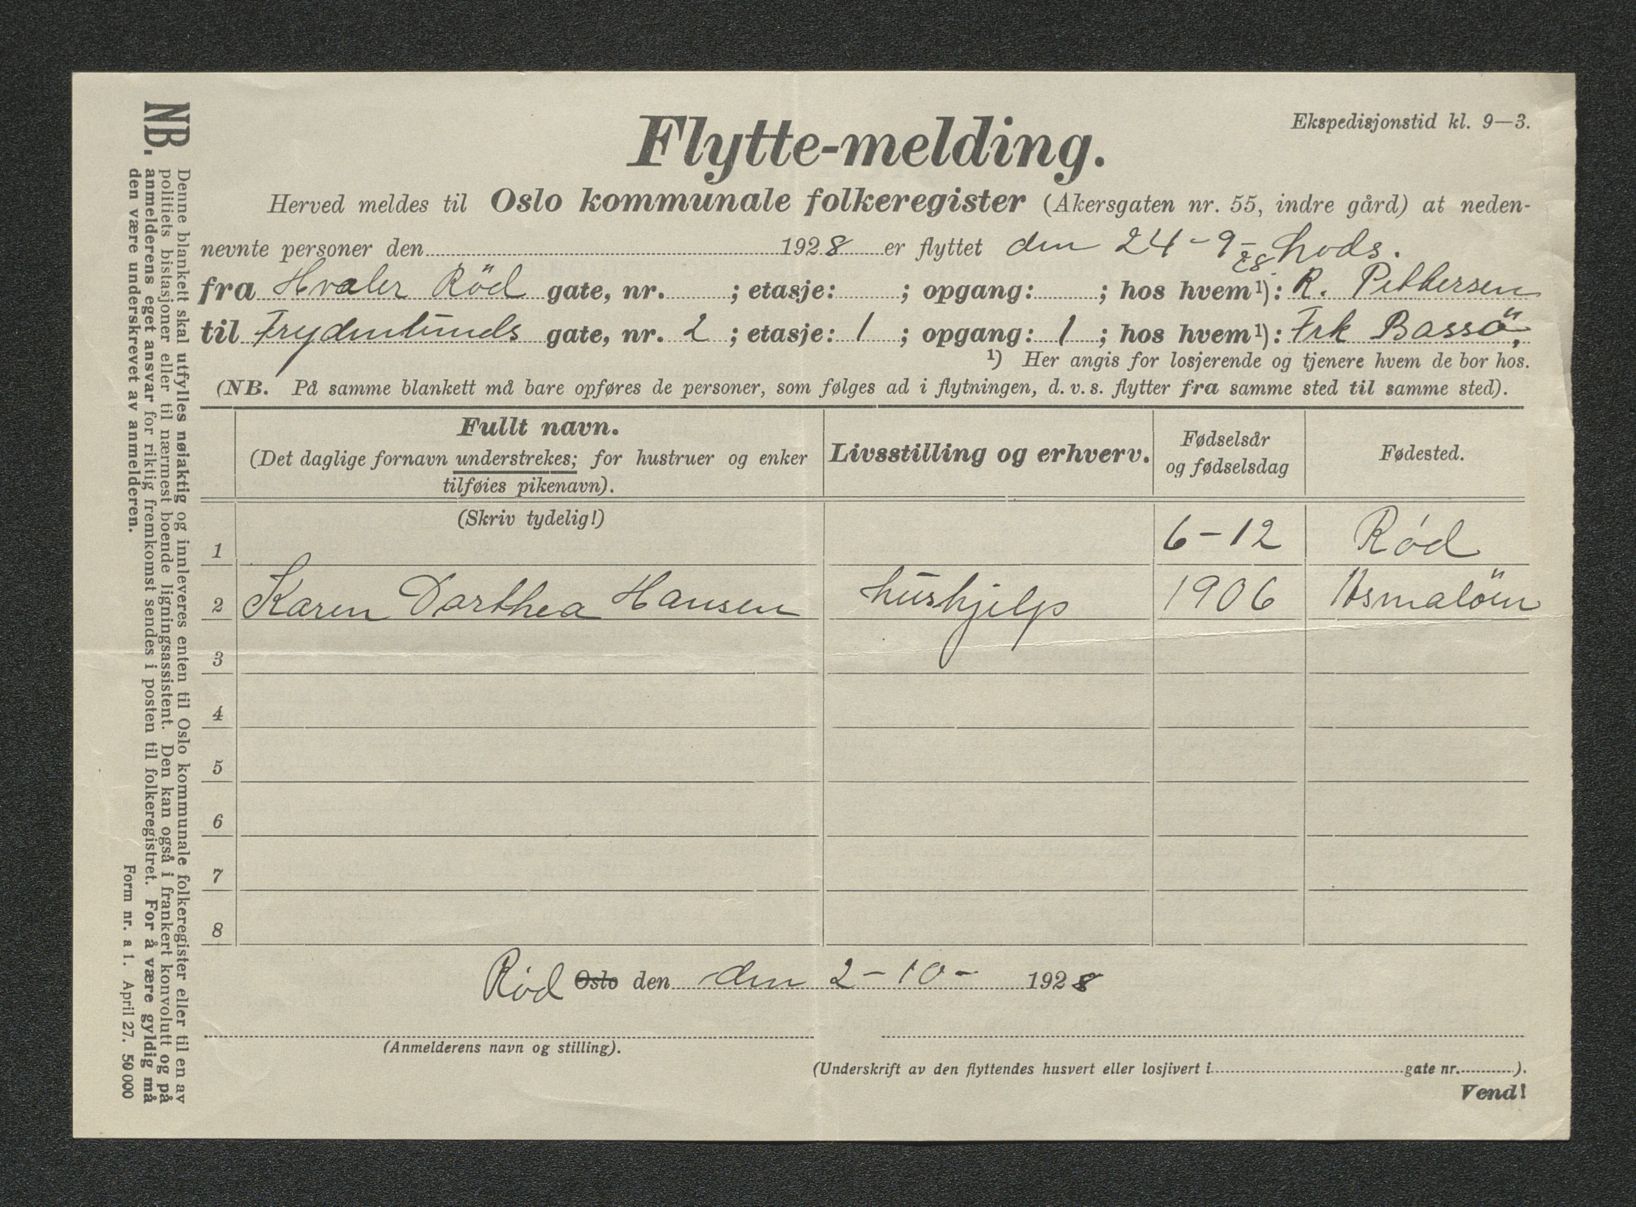 Ekspedisjonstid kl. 9—3.
Flytte-melding.
Herved meldes til Oslo kommunale folkeregister (Akersgaten nr. 55, indre gård) at neden-
nevnte personer den 1928 er flyttet den 24-9-28 hvds.
fra Hvaler Rød gate, nr. ; etasje: ; opgang: ; hos hvem¹): R. Pettersen
til Frydenlunds gate, nr. 2 ; etasje: 1 ; opgang: 1 ; hos hvem¹): Frk Bassö,
¹) Her angis for losjerende og tjenere hvem de bor hos.
(NB. På samme blankett må bare opføres de personer, som følges ad i flytningen, d. v. s. flytter fra samme sted til samme sted).
Fullt navn.
(Det daglige fornavn understrekes; for hustruer og enker
tilføies pikenavn).
Livsstilling og erhverv.
Fødselsår
og fødselsdag
Fødested.
(Skriv tydelig!)
1 6-12 Rød
2 Karen Dorthea Hansen hushjelp 1906 Asmalöen
3
4
5
6
7
8
Rød Oslo den den 2-10- 1928
(Anmelderens navn og stilling).
(Underskrift av den flyttendes husvert eller losjivert i gate nr. ).
Vend!
NB. Denne blankett skal utfylles nøiaktig og innleveres enten til Oslo kommunale folkeregister eller til en av
politiets bistasjoner eller til nærmest boende ligningsassistent. Den kan også i frankert konvolutt og på
anmelderens eget ansvar for riktig fremkomst sendes i posten til folkeregistret. For å være gyldig må
den være underskrevet av anmelderen.
Form nr. a 1. April 27. 50 000